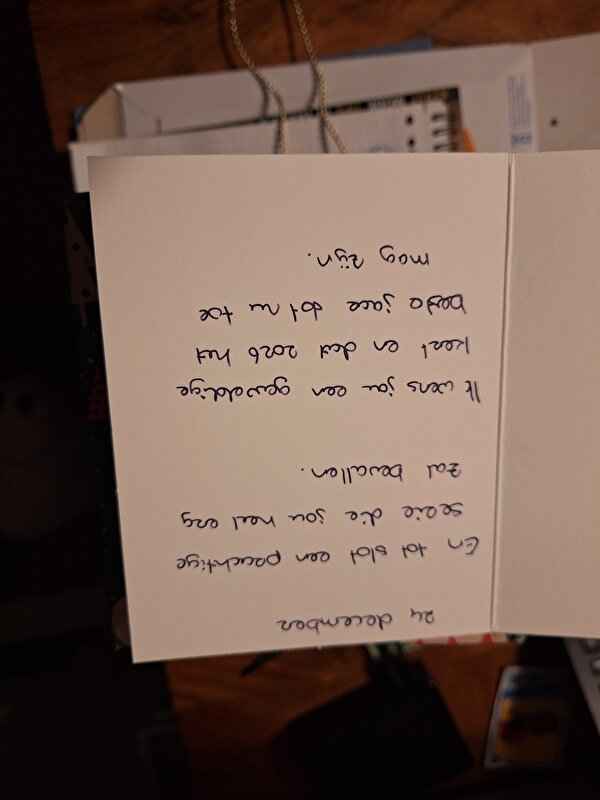 24 december
En tot slot een prachtige
serie die jou heel erg
zal bevallen.
Ik wens jou een geweldige
kerst en dat 2026 het
beste jaar tot nu toe
mag zijn.